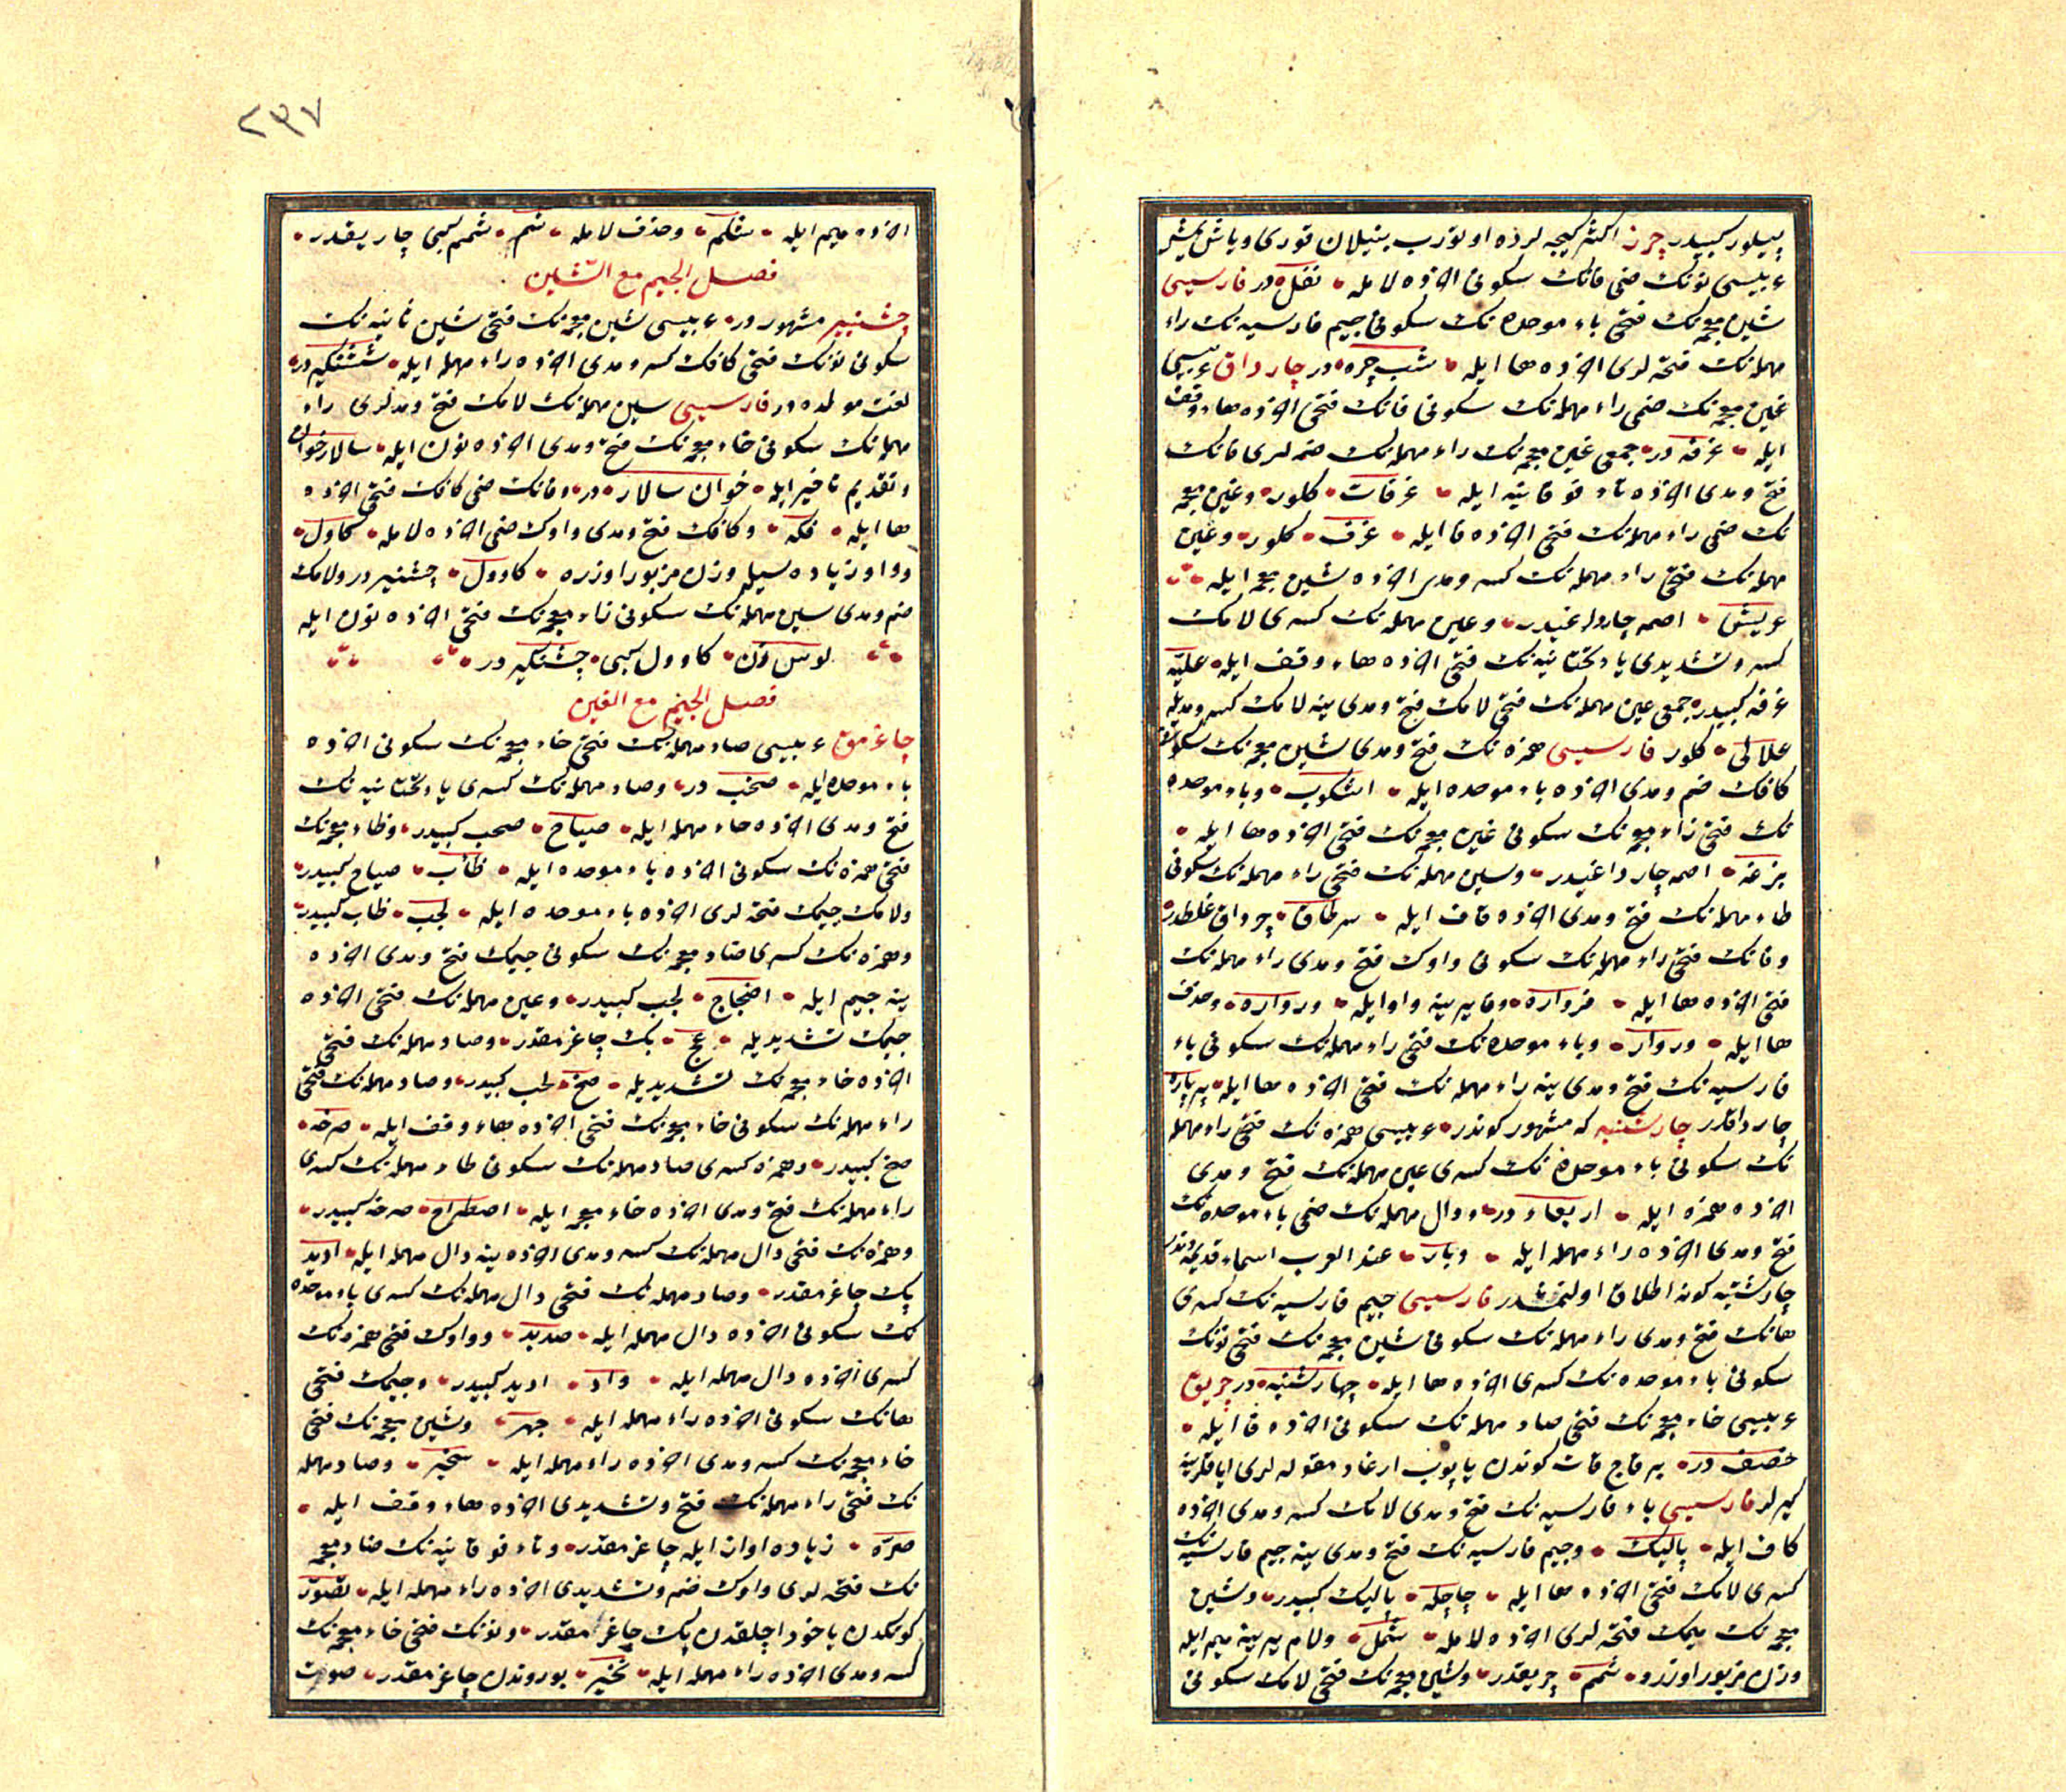 پیلور کبیدر چرز اکثر کیجه لرده اوتورب ینیلان قوری ویاش یمیش
عربیسی نونك ضمی قافك سکونی اخرده لامله نقل در فارسیسی
شین معجمه نك فتحی باء موحده نك سکونی جیم فارسیه نك راء
مهمله نك فتحه لری اخرده ها ایله شب چره در چارداق عربیسی
غین معجمه نك ضمی راء مهمله نك سکونی فانك فتحی اخرده هاء وقف
ایله غرفه در جمعی غین معجمه نك راء مهمله نك ضمه لری فانك
فتح ومدی اخرده تاء فوقانیه ایله غرفات کلور وغین معجمه
نك ضمی راء مهمله نك فتحی اخرده فا ایله غرف کلور وعین
مهمله نك فتحی راء مهمله نك کسر ومدی اخرده شین معجمه ایله
عریش اصمه چارداغیدر وعین مهمله نك کسری لامك
کسر وتشدیدی یاء تحتانیه نك فتحی اخرده هاء وقف ایله علیه
غرفه کبیدر جمعی عین مهمله نك فتحی لامك فتح ومدی ینه لامك کسر ومدیله
علالی کلور فارسیسی همزه نك فتح ومدی شین معجمه نك سکونی
کافك ضم ومدی اخرده باء موحده ایله اشکوب وباء موحده
نك فتحی زاء معجمه نك سکونی غین معجمه نك فتحی اخرده ها ایله
بزغه اصمه چارداغیدر وسین مهمله نك فتحی راء مهمله نك سکونی
طاء مهمله نك فتح ومدی اخرده قاف ایله سرطاق چرداق غلطدر
وفانك فتحی راء مهمله نك سکونی واوك فتح ومدی راء مهمله نك
فتحی اخرده ها ایله فرواره وفا یرینه واو ایله ورواره وحذف
ها ایله وروار وباء موحده نك فتحی راء مهمله نك سکونی باء
فارسیه نك فتح ومدی ینه راء مهمله نك فتحی اخرده ها ایله بربازه
چارداقدر چارشنبه که مشهور کوندر عربیسی همزه نك فتحی راء مهمله
نك سکونی باء موحده نك کسری عین مهمله نك فتح ومدی
اخرده همزه ایله اربعاء در ودال مهمله نك ضمی باء موحده نك
فتح ومدی اخرده راء مهمله ایله دبار عند العرب اسماء قدیمه دندر
چارشنبه کونه اطلاق اولنمشدر فارسیسی جیم فارسیه نك کسری
هانك فتح ومدی راء مهمله نك سکونی شین معجمه نك فتحی نونك
سکونی باء موحده نك کسری اخرده ها ایله چهارشنبه در چریق
عربیسی خاء معجمه نك فتحی صاد مهمله نك سکونی اخرده فا ایله
خصف در بر قاج قات کوندن یاپوب ارغاد مقوله لری ایاقلرینه
کیرلر فارسیسی باء فارسیه نك فتح ومدی لامك کسر ومدی اخرده
کاف ایله پالیك وجیم فارسیه نك فتح ومدی ینه جیم فارسیه نك
کسری لامك فتحی اخرده ها ایله چاچله پالیك کبیدر وشین
معجمه نك میمك فتحه لری اخرده لامله شمل ولام یرینه میم ایله
وزن مزبور اوزره شمم چریقدر وشین معجمه نك فتحی لامك سکونی
٢٣٧
اخرده میم ایله شلم وحذف لامله شم شمم کبی چاریقدر
فصل الجیم مع الشین
چشنیر مشهور در عربیسی شین معجمه نك فتحی شین ثانیه نك
سکونی نونك فتحی کافك کسر ومدی اخرده راء مهمله ایله ششنکیر در
لغت مولده در فارسیسی سین مهمله نك لامك فتح ومدلری راء
مهمله نك سکونی خاء معجمه نك فتح ومدی اخرده نون ایله سالار خوان
وتقدیم تاخیر ایله خوان سالار در وفانك ضمی کافك فتحی اخرده
ها ایله فکه وکافك فتح ومدی واوك ضمی اخرده لامله کاول
وواو زیاده سیله وزن مزبور اوزره کاوول چشنیر در ولامك
ضم ومدی سین مهمله نك سکونی زاء معجمه نك فتحی اخرده نون ایله
لوس زن کاوول کبی چشنکیر در
فصل الجیم مع الغین
چاغرمق عربیسی صاد مهمله نك فتحی خاء معجمه نك سکونی اخرده
باء موحده ایله صخب در وصاد مهمله نك کسری یاء تحتانیه نك
فتح ومدی اخرده حاء مهمله ایله صیاح صخب کبیدر وظاء معجمه نك
فتحی همزه نك سکونی اخرده باء موحده ایله ظأب صیاح کبیدر
ولامك جیمك فتحه لری اخرده باء موحده ایله لجب ظأب کبیدر
وهمزه نك کسری ضاد معجمه نك سکونی جیمك فتح ومدی اخرده
ینه جیم ایله اضجاج لجب کبیدر وعین مهمله نك فتحی اخرده
جیمك تشدیدیله عج پك چاغرمقدر وصاد مهمله نك فتحی
اخرده خاء معجمه نك تشدیدیله صخ لجب کبیدر وصاد مهمله نك فتحی
راء مهمله نك سکونی خاء معجمه نك فتحی اخرده هاء وقف ایله صرخه
صخ کبیدر وهمزه کسری صاد مهمله نك سکونی طاء مهمله نك کسری
راء مهمله نك فتح ومدی اخرده خاء معجمه ایله اصطراخ صرخه کبیدر
وهمزه نك فتحی دال مهمله نك کسر ومدی اخرده ینه دال مهمله ایله ادید
پك چاغرمقدر وصاد مهمله نك فتحی دال مهمله نك کسری یاء موحده
نك سکونی اخرده دال مهمله ایله صدید وواوك فتحی همزه نك
کسری اخرده دال مهمله ایله وأد ادید کبیدر وجیمك فتحی
هانك سکونی اخرده راء مهمله ایله جهر وشین معجمه نك فتحی
خاء معجمه نك کسر ومدی اخرده راء مهمله ایله شخیر وصاد مهمله
نك فتحی راء مهمله نك فتح وتشدیدی اخرده هاء وقف ایله
صرّه زیاده اواز ایله چاغرمقدر وتاء فوقانیه نك ضاد معجمه
نك فتحه لری واوك ضم وتشدیدی اخرده راء مهمله ایله تضوّر
کوتکدن یاخود اچلقدن پك چاغرمقدر ونونك فتحی خاء معجمه نك
کسر ومدی اخرده راء مهمله ایله نخیر بوروندن چاغرمقدر صوت